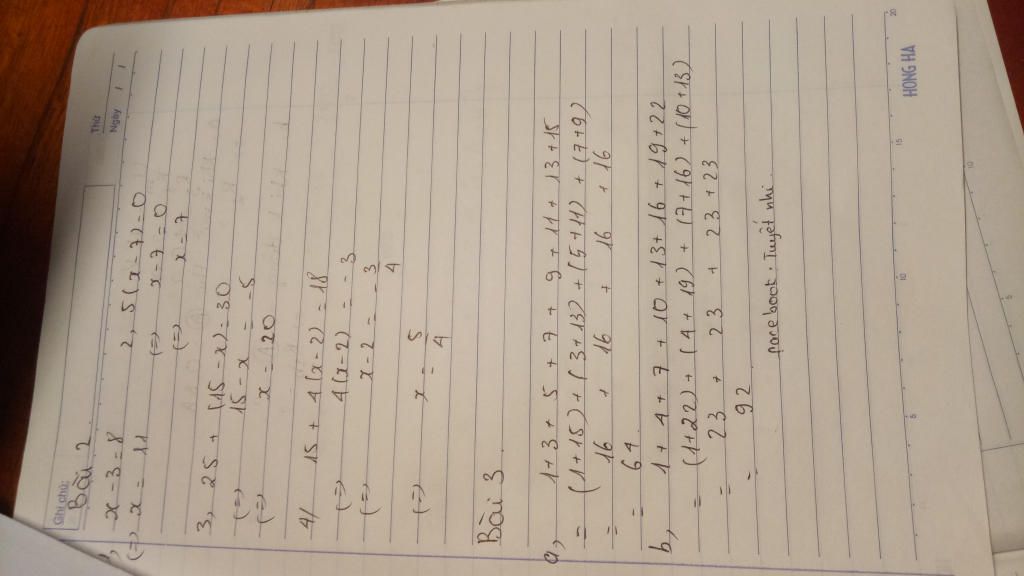 Thứ
Ngày
Ghi chú:
Bài 2
1, x - 3 = 8
(=) x = 11
2, 5(x-7) = 0
(=) x - 7 = 0
(=) x = 7
3, 25 + (15 - x) = 30
(=) 15 - x = -5
(=) x = 20
4/ 15 + 4(x-2) = 18
(=) 4(x-2) = -3
(=) x - 2 = -3/4
(=) x = 5/4
Bài 3
a, 1 + 3 + 5 + 7 + 9 + 11 + 13 + 15
= (1+15) + (3+13) + (5+11) + (7+9)
= 16 + 16 + 16 + 16
= 64
b, 1 + 4 + 7 + 10 + 13 + 16 + 19 + 22
= (1+22) + (4+19) + (7+16) + (10+13)
= 23 + 23 + 23 + 23
= 92
paceboot. Tuyết nhi.
5 10 15 20
HONG HA